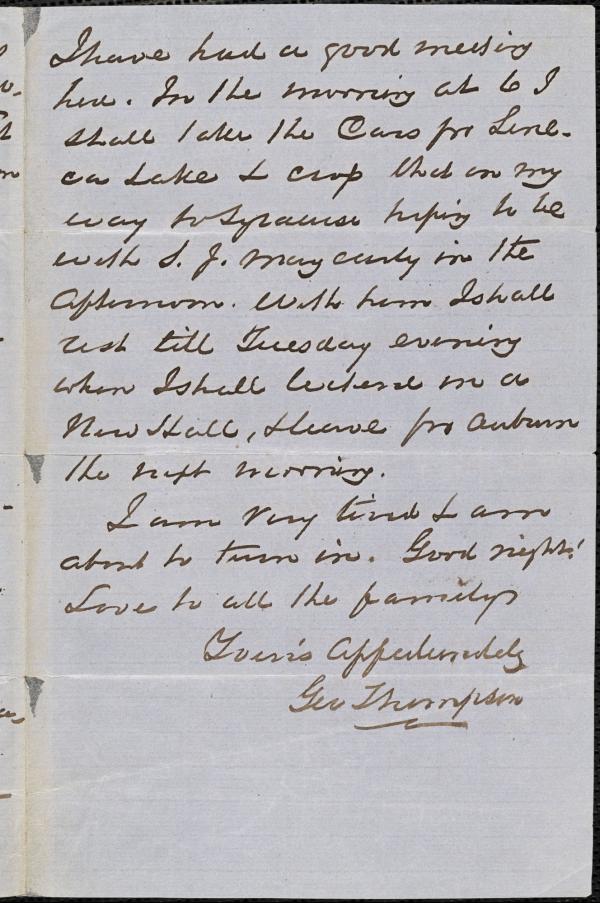 I have had a good meeting
here. In the morning at 6 I
shall take the Cars for Sene-
ca Lake & cross that on my
way to Syracuse hoping to be
with S. J. May early in the
afternoon. With him I shall
rest till Tuesday evening
when I shall lecture in a
New Hall, & leave for Auburn
the next morning.
I am very tired & am
about to turn in. Good night!
Love to all the family
Yours Affectionately
Geo Thompson